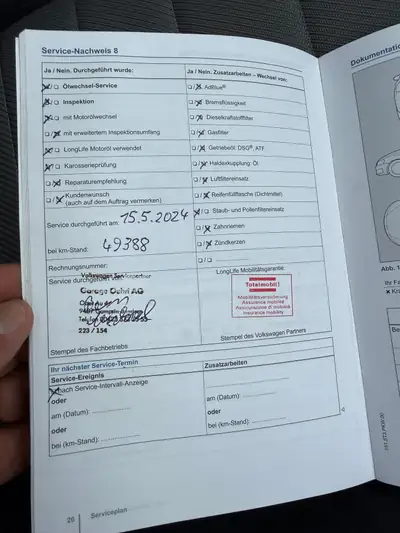 Service-Nachweis 8
Ja / Nein. Durchgeführt wurde:
Ölwechsel-Service
Inspektion
mit Motorölwechsel
mit erweitertem Inspektionsumfang
LongLife Motoröl verwendet
Karosserieprüfung
Reparaturempfehlung
Kundenwunsch
(auch auf dem Auftrag vermerken)
Service durchgeführt am: 15.5.2024
bei km-Stand: 49388
Rechnungsnummer:
Service durchgeführt von:
Volkswagen Servicepartner
Garage Dähri AG
223 / 154
Stempel des Fachbetriebs
Ja / Nein: Zusatzarbeiten – Wechsel von:
AdBlue®
Bremsflüssigkeit
Dieselkraftstofffilter
Gasfilter
Getriebeöl: DSG®, ATF
Haldexkupplung: Öl
Luftfiltereinsatz
Reifenfüllflasche (Dichtmittel)
Staub- und Pollenfiltereinsatz
Zahnriemen
Zündkerzen
LongLife Mobilitätsgarantie:
Totalmobil!
Mobilitätsversicherung
Assurance mobilité
Assicurazione di mobilità
insurance mobility
Stempel des Volkswagen Partners
Ihr nächster Service-Termin
Service-Ereignis
nach Service-Intervall-Anzeige
oder
am (Datum):
oder
bei (km-Stand):
Zusatzarbeiten
am (Datum):
oder
bei (km-Stand):
26
Serviceplan
Dokumentatio